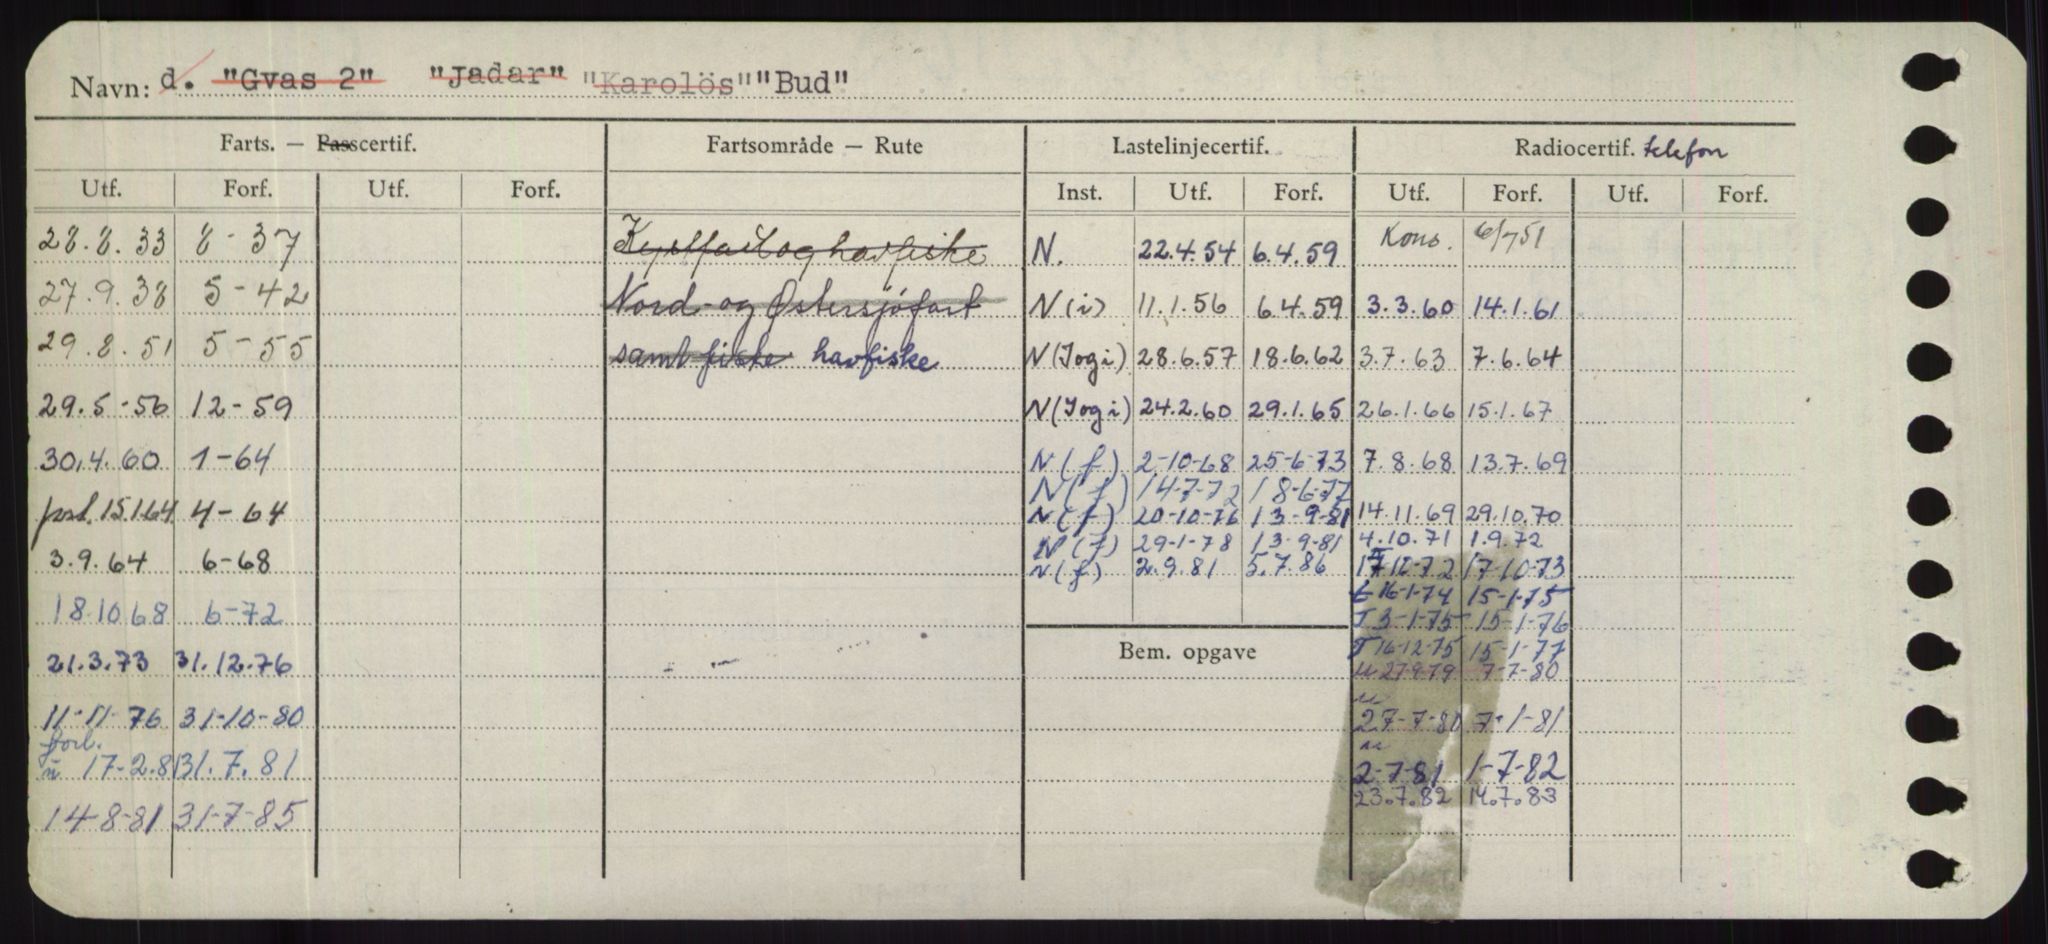 Navn: d. "Gvas 2" "Jadar" "Karolös" "Bud"
Farts. — Passcertif. Fartsområde — Rute Lastelinjecertif. Radiocertif. telefon
Utf. Forf. Utf. Forf. Inst. Utf. Forf. Utf. Forf. Utf. Forf.
28.8.33 8-37 Kystfart og havfiske N. 22.4.54 6.4.59 Kons. 6/7 51
27.9.38 5-42 Nord- og Østersjøfart N(i) 11.1.56 6.4.59 3.3.60 14.1.61
29.8.51 5-55 samt fiske havfiske N(I og i) 28.6.57 18.6.62 3.7.63 7.6.64
29.5-56 12-59 N(I og i) 24.2.60 29.1.65 26.1.66 15.1.67
30.4.60 1-64 N(f) 2-10-68 25-6-73 7.8.68 13.7.69
N(f) 14-7-72 18-6-77
15.1.64 4-64 N(f) 20-10-76 13-9-81 14.11.69 29.10.70
N(f) 29-1-78 13-9-81 4.10.71 1.9.72
3.9.64 6-68 N(f) 2.9.81 5.7.86 17-10-73
16-1-74 15-1-75
18.10.68 6-72 T 3-1-75 15-1-76
21.3.73 31.12.76 Bem. opgave T 16-12-75 15-1-77
u 27-9-79 7-7-80
u
11-11-76 31-10-80 27-7-80 7-1-81
forl. u
u 17-2.81 31.7.81 2-7-81 1-7-82
23.7.82 14.7.83
14-8-81 31-7-85